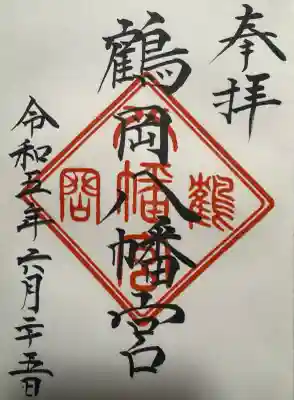 奉拝
鶴岡八幡宮
令和五年六月二十五日
鶴
八幡宮
岡